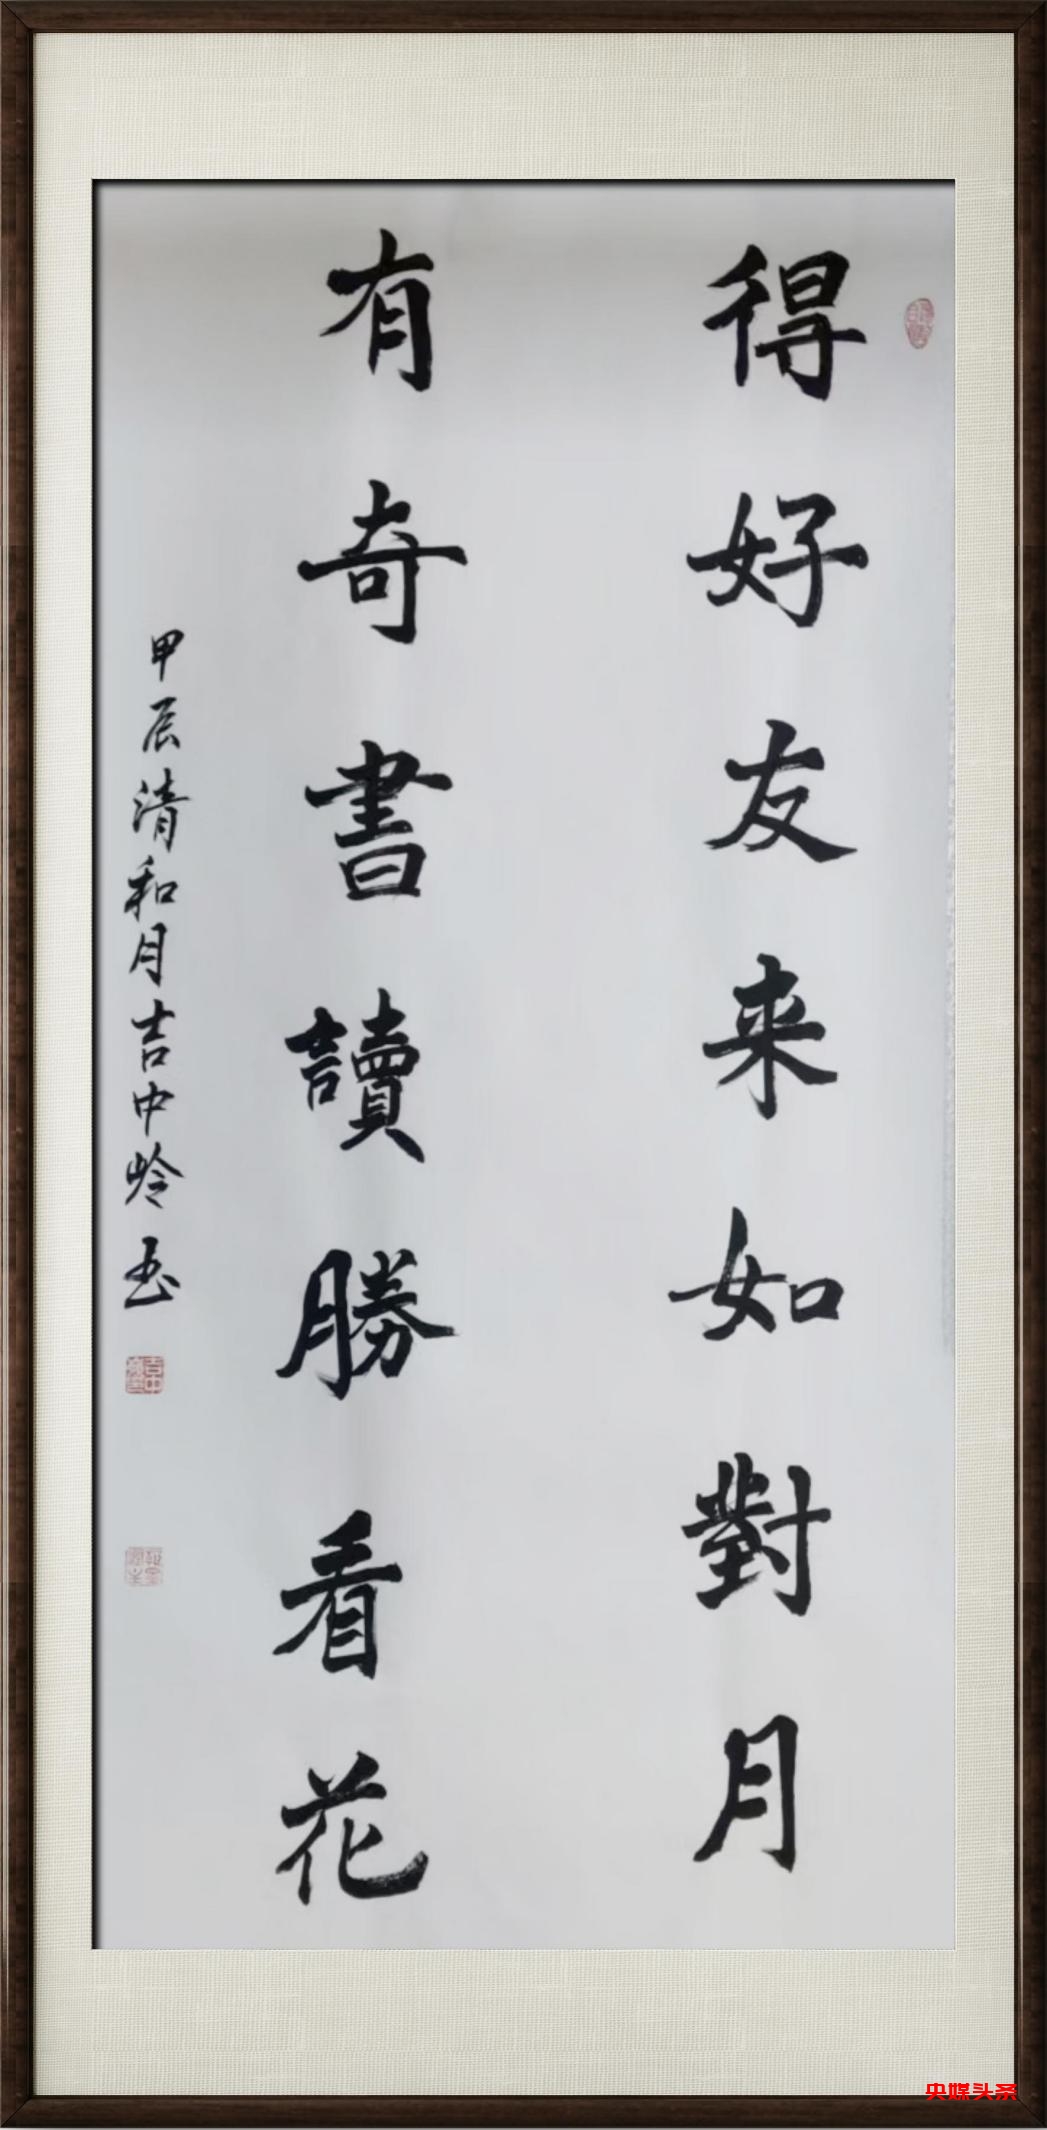 得好友来如對月
有奇書讀勝看花
甲辰清和月吉中岭书
央媒头条